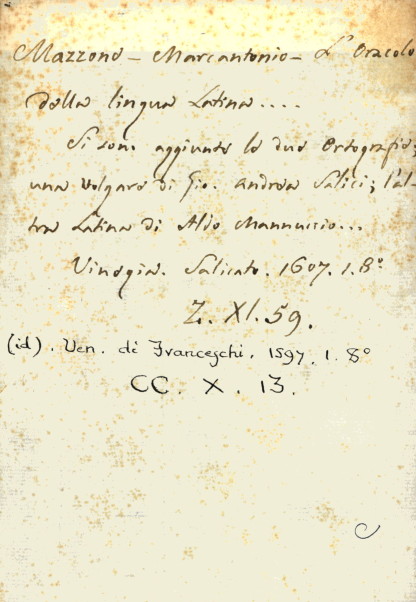 Mazzone - Marcantonio - L'Oracolo
della lingua Latina....
Si sono aggiunte le due Ortografie;
una volgare di Gio. Andrea Salici; l'al
tra Latina di Aldo Mannuccio...
Vinegia. Salicato. 1607. 1. 8°
Z. XI. 59.
(id). Ven. de Franceschi. 1597. 1. 8°
CC. X. 13.